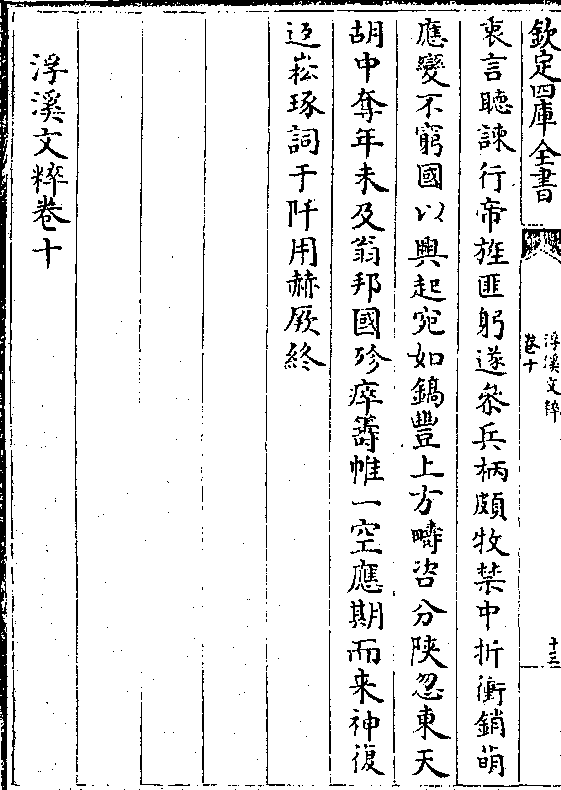 欽定四庫全書
浮溪文粹
卷十
十三
衷言聽諫行帝旌匪躬遂叅兵柄頗牧禁中折衝銷萌
應變不窮國以興起宛如鎬豐上方疇咨分陜忽東天
胡中奪年未及翁邦國殄瘁籌帷一空應期而来神復
迈崧琢詞于阡用赫厥終
浮溪文粹卷十